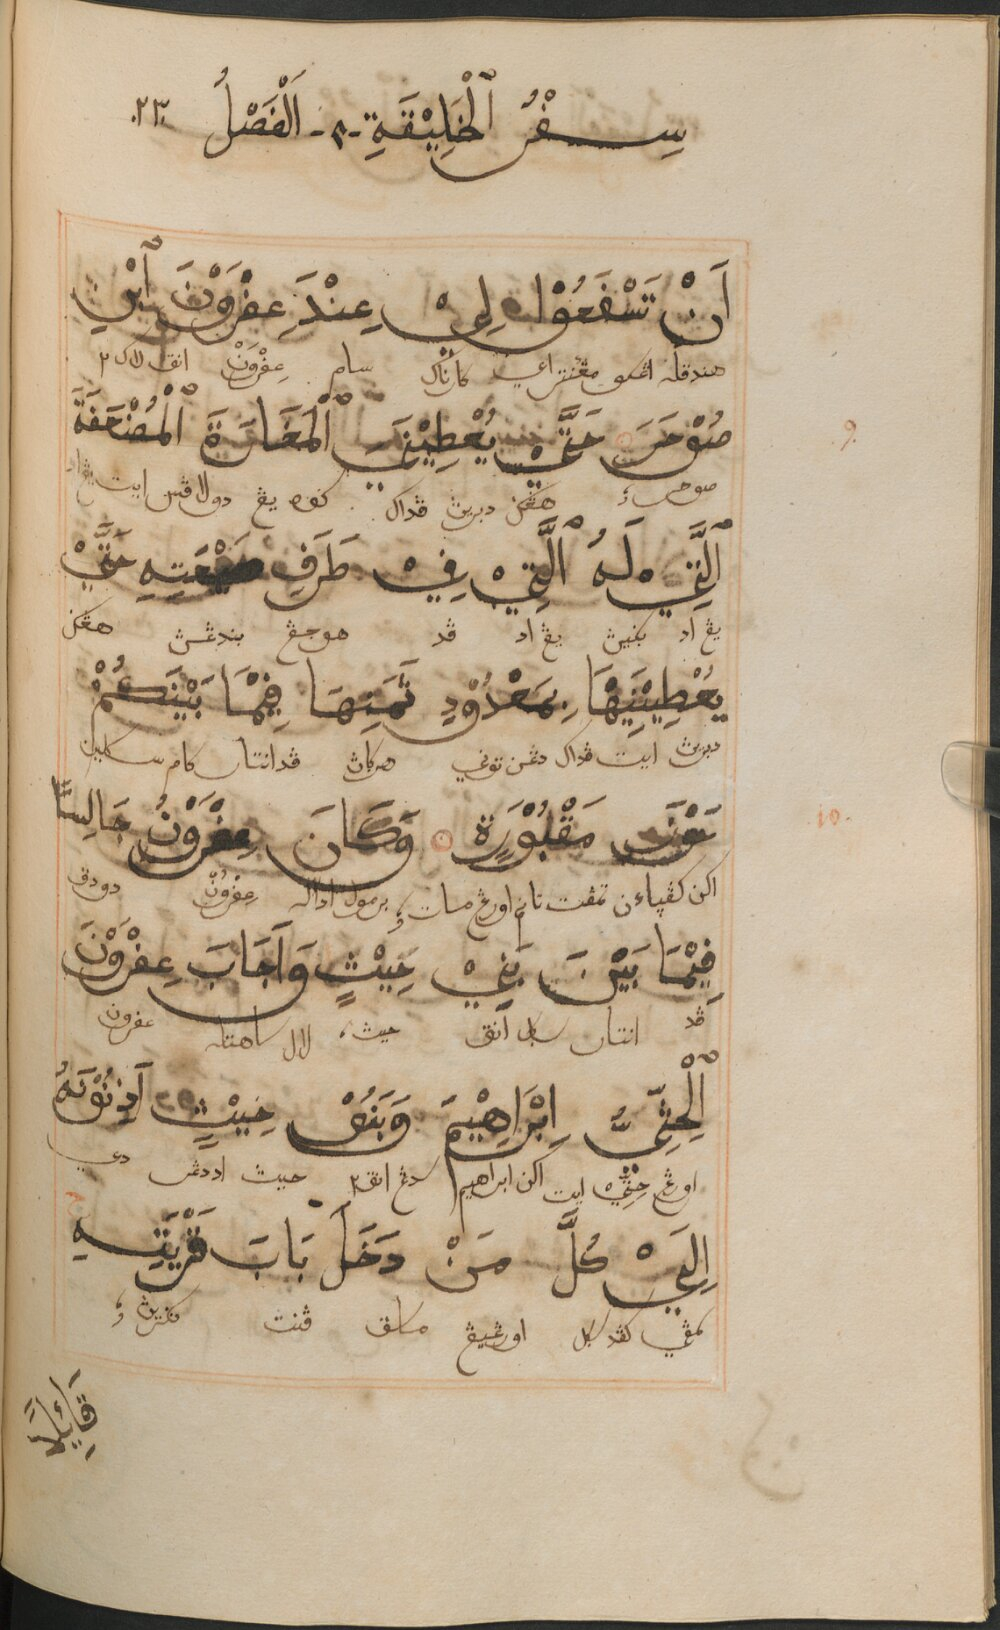 سِفْرُ ٱلْخَلِيْقَةِ -١- اَلْفَصْلُ .٢٣.
اَنْ تَسْفَعُوْا لِيْ عِنْدَ عِفْرَوْنَ ٱبْنِ
هندقله اڠكو مڠنتراءي كارناك سام عِفْرَوْنْ انق لاك٢
صُوْحَرَ حَتَّيْ يُعْطِيْنِيَ ٱلْمَغَارَةَ ٱلْمُضْعَفَةَ
9.
صوحر هڠكن دبرين ڤداك كوه يڠ دولاڤس ايت يڠ اد
ٱلَّتِيْ لَهُ ٱلَّتِيْ فِيْ طَرَفِ ضَيْعَتِهِ حَتَّيْ
يڠ اد بڬيڽ يڠ اد ڤد هوجڠ بندڠڽ هڠكن
يُعْطِيْنِيْهَا بِمَعْدُوْدِ ثَمَنِهَا فِيْمَا بَيْنَكُمْ
دبرين ايت ڤداك دڠن توني هركاڽ ڤد انتار كام سكلين
نَوْنَ مَقْبُوْرَةٍ وَكَانَ عِفْرَوْنُ جَالِسًا
10.
اكن كڤپاءن تمڤت تانم اورڠ مات برمول اداله عِفْرَوُنْ دودق
فِيْمَا بَيْنَ بَنِيْ حِيْثٍ وَاَجَابَ عِفْرَوْنَ
ڤد انتار سكل انق حيث لال ساهتله عفرون
ٱلْحِثِّيُّ اِبْرَاهِيْمَ وَبَنُوْ حِيْثٍ اَذِنُوْنَهُ
اورڠ حِثِّيْ ايت اكن ابراهيم سدڠ انق٢ حيث اد دڠر دي
اِلَيْ كُلَّ مَنْ دَخَلَ بَابَ قَرْيَتِهِ
لمڤي كڤد سكل اورڠ يڠ ماسق ڤنت نكرين
قَائِلًا